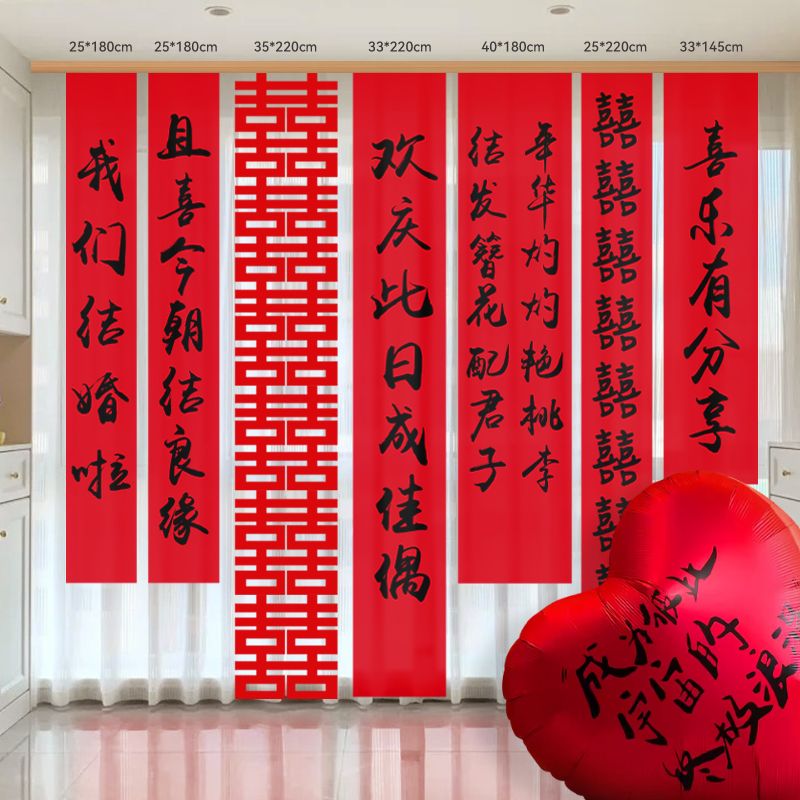 25*180cm
25*180cm
35*220cm
33*220cm
40*180cm
25*220cm
33*145cm
我们结婚啦
且喜今朝结良缘
囍囍囍囍囍囍囍囍囍囍囍囍
欢庆此日成佳偶
年华灼灼艳桃李
结发簪花配君子
囍囍囍囍囍囍囍
喜乐有分享
成为彼此
宇宙的
终极浪